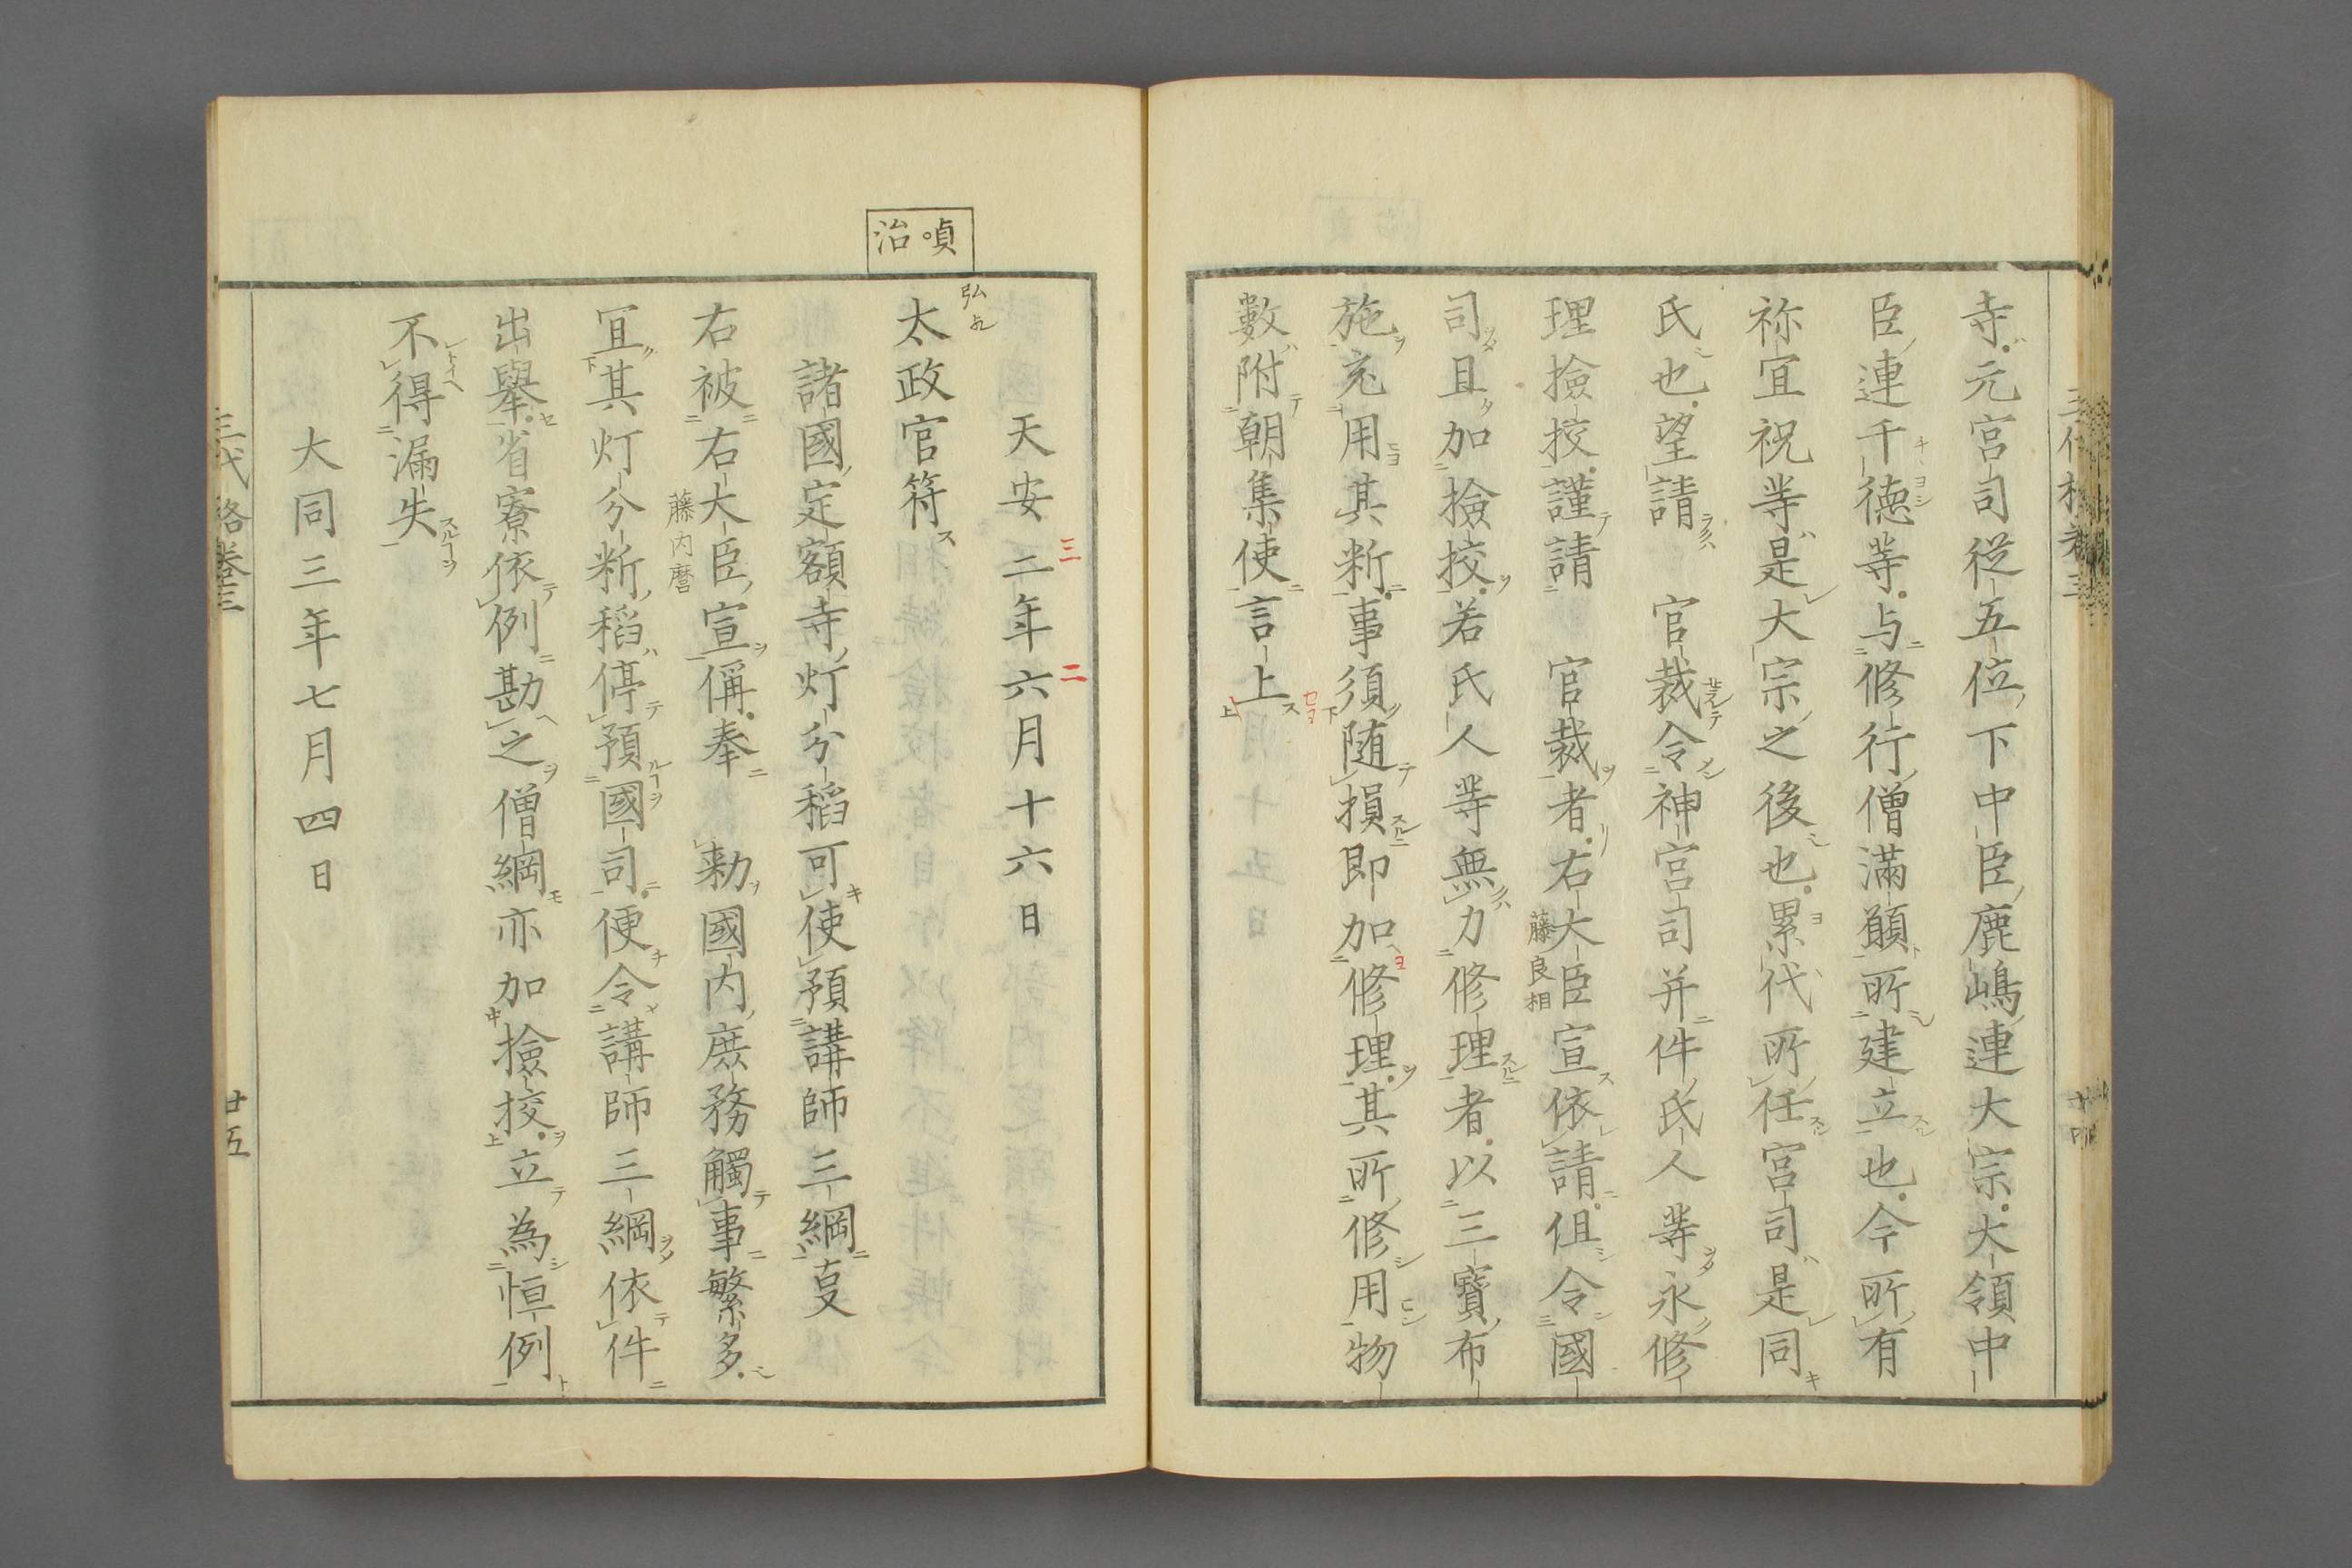 寺元宮司従五位下中臣鹿嶋連大宗大領中
臣連千徳等与修行僧滿願所建立也今所有
祢冝祝等是大宗之後也累代所任宮司是同
氏也望請　官裁令神宮司并件氏人等永修
理撿挍謹請　官裁者右大臣宣依請但令國
藤良相
司且加撿挍若氏人等無力修理者以三寳布
施充用其新事須随損即加修理其所修用物
數附朝集使言上
天安二年六月十六日
三
二
嗔治
弘九
太政官符
諸國定額寺灯分稻可使預講師三綱㕝
右被右大臣宣偁奉　勅國内庶務觸事繁多
藤内麿
冝其灯分新稻停預國司便令講師三綱依件
出舉省寮依例勘之僧綱亦加撿挍立為恒例
不得漏失
大同三年七月四日
三代格卷三
廿五